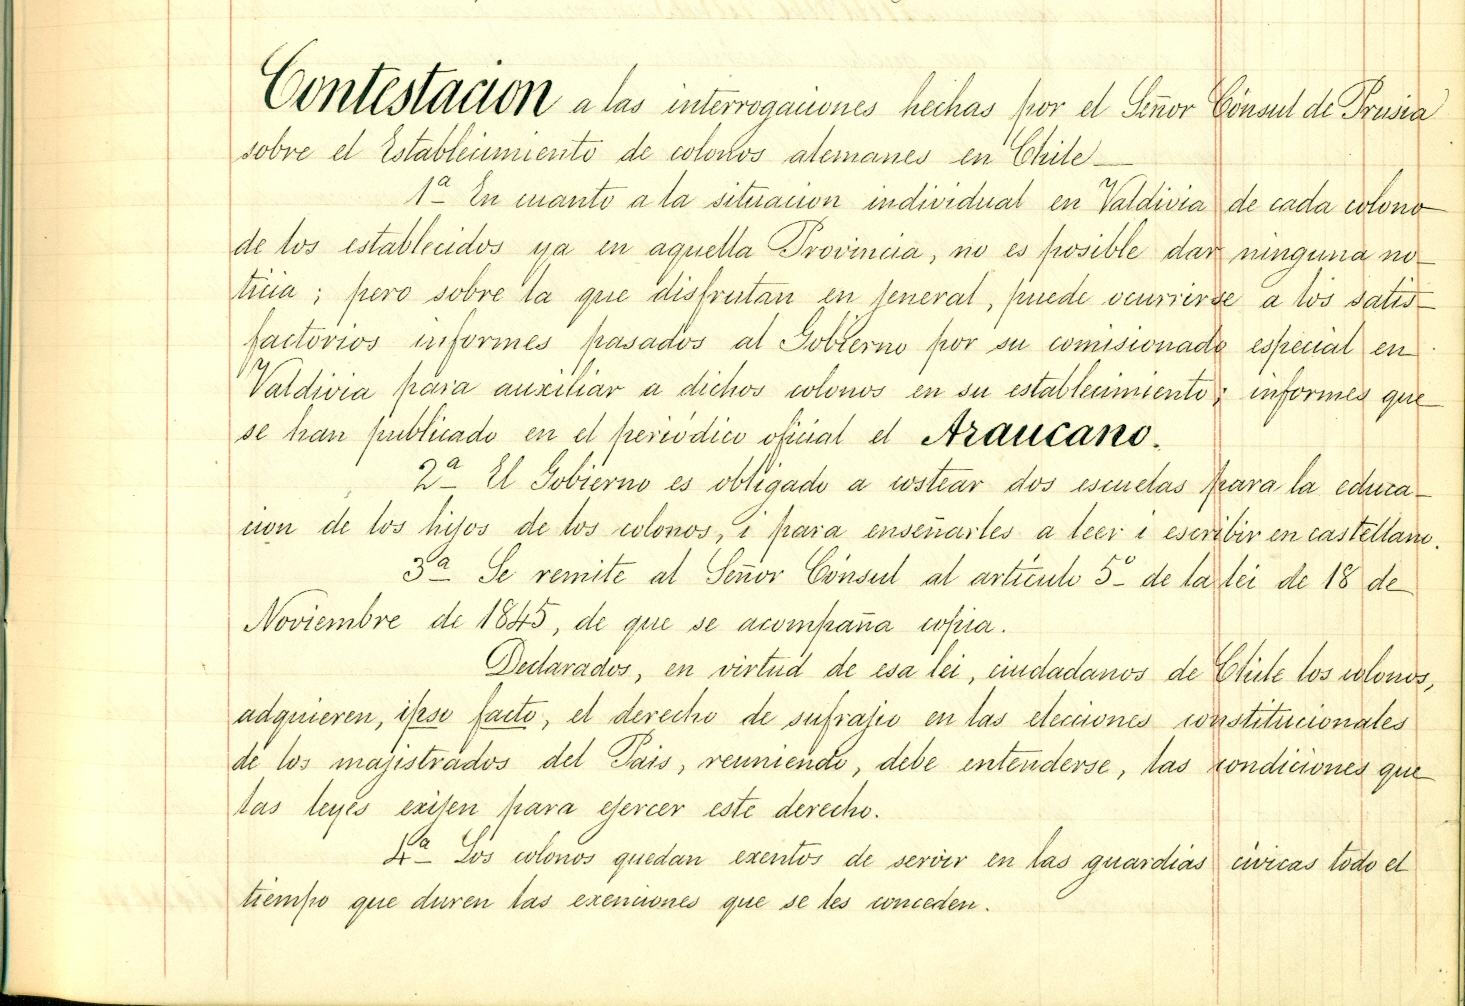 Contestacion a las interrogaciones hechas por el Señor Cónsul de Prusia
sobre el Establecimiento de colonos alemanes en Chile_
1ª En cuanto a la situacion individual en Valdivia de cada colono
de los establecidos ya en aquella Provincia, no es posible dar ninguna no_
ticia; pero sobre la que disfrutan en jeneral, puede ocurrirse a los satis_
factorios informes pasados al Gobierno por su comisionado especial en
Valdivia para auxiliar a dichos colonos en su establecimiento; informes que
se han publicado en el periódico oficial el Araucano.
2ª El Gobierno es obligado a costear dos escuelas para la educa_
cion de los hijos de los colonos, i para enseñarles a leer i escribir en castellano.
3ª Se remite al Señor Cónsul al artículo 5º de la lei de 18 de
Noviembre de 1845, de que se acompaña copia.
Declarados, en virtud de esa lei, ciudadanos de Chile los colonos,
adquieren, ipso facto, el derecho de sufrajio en las elecciones constitucionales
de los majistrados del Pais, reuniendo, debe entenderse, las condiciones que
las leyes exijen para ejercer este derecho.
4ª Los colonos quedan exentos de servir en las guardias cívicas todo el
tiempo que duren las exenciones que se les conceden.